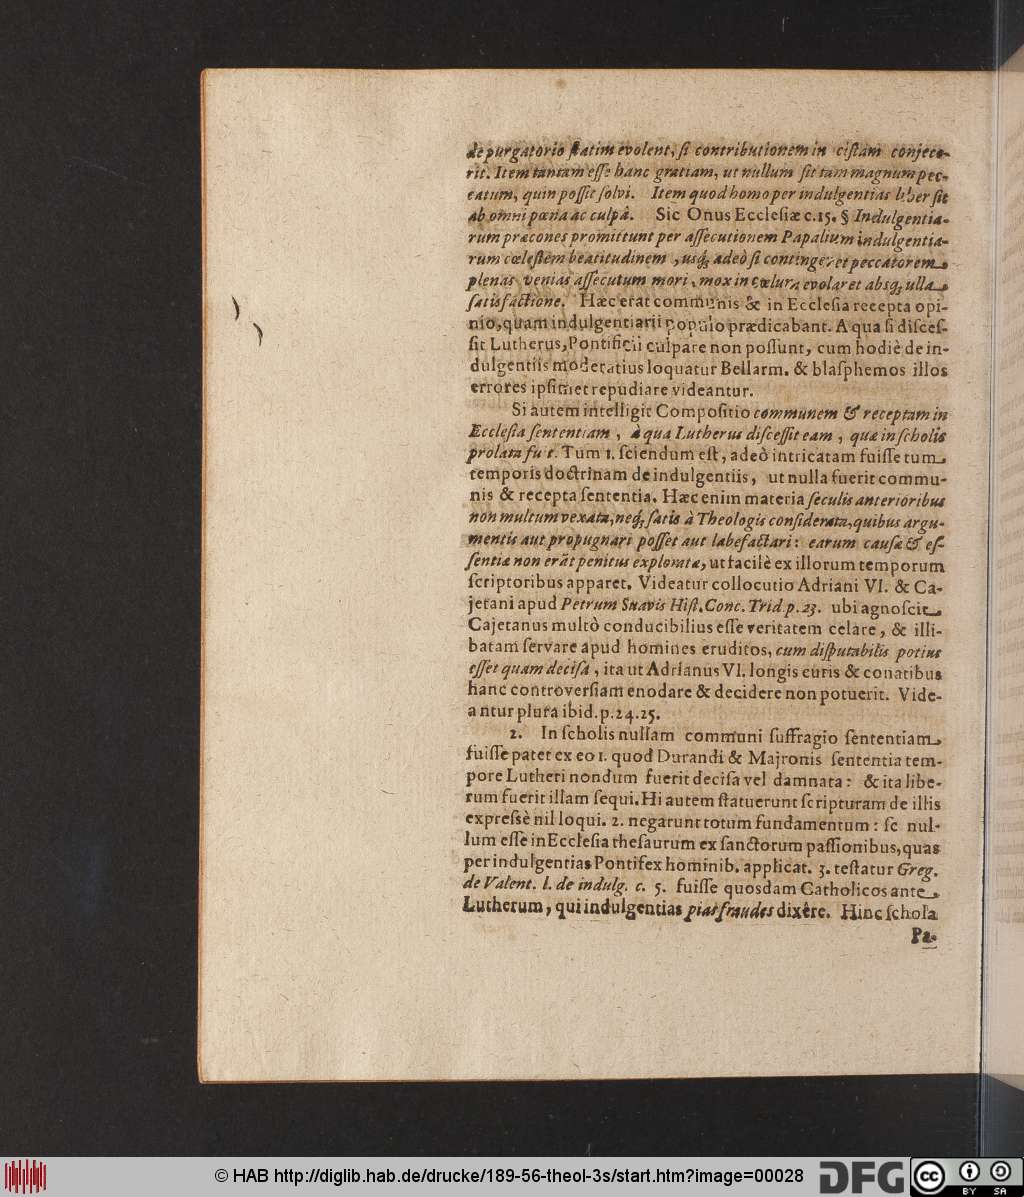 de purgatorio ſtatim evolent, ſi contributionem in ciſtam conjece-
rit. Item tantam eſſe hanc gratiam, ut nullum ſit tam magnum pec-
catum, quin poſſit ſolvi. Item quod homo per indulgentias liber ſit
ab omni pœna ac culpâ. Sic Onus Eccleſiæ c. 15. § Indulgentia-
rum præcones promittunt per aſſecutionem Papalium indulgentia-
rum cœleſtem beatitudinem, usq; adeò ſi contingeret peccatorem
plenas venias aſſecutum mori, mox in cœlum evolaret absq; ulla
ſatisfactione. Hæc erat communis & in Eccleſia recepta opi-
nio, quam indulgentiarii populo prædicabant. A qua ſi diſceſ-
ſit Lutherus, Pontificii culpare non poſſunt, cum hodiè de in-
dulgentiis moderatius loquatur Bellarm. & blaſphemos illos
errores ipſimet repudiare videantur.
Si autem intelligit Compoſitio communem & receptam in
Eccleſia ſententiam, à qua Lutherus diſceſſit eam, quæ in ſcholis
prolata fuit. Tum 1. ſciendum eſt, adeò intricatam fuiſſe tum
temporis doctrinam de indulgentiis, ut nulla fuerit commu-
nis & recepta ſententia. Hæc enim materia ſeculis anterioribus
non multum vexata, neq; ſatis à Theologis conſiderata, quibus argu-
mentis aut propugnari poſſet aut labefactari: earum cauſæ & eſ-
ſentia non erãt penitus exploratæ, ut facilè ex illorum temporum
ſcriptoribus apparet. Videatur collocutio Adriani VI. & Ca-
jetani apud Petrum Suavis Hiſt. Conc. Trid. p. 23. ubi agnoſcit
Cajetanus multò conducibilius eſſe veritatem celare, & illi-
batam ſervare apud homines eruditos, cum diſputabilis potius
eſſet quam deciſa, ita ut Adrianus VI. longis curis & conatibus
hanc controverſiam enodare & decidere non potuerit. Vide-
antur plura ibid. p. 24. 25.
2. In ſcholis nullam communi ſuffragio ſententiam
fuiſſe patet ex eo 1. quod Durandi & Majronis ſententia tem-
pore Lutheri nondum fuerit deciſa vel damnata: & ita libe-
rum fuerit illam ſequi. Hi autem ſtatuerunt ſcripturam de illis
expreſsè nil loqui. 2. negarunt totum fundamentum: ſc nul-
lum eſſe in Eccleſia theſaurum ex ſanctorum paſſionibus, quas
per indulgentias Pontifex hominib. applicat. 3. teſtatur Greg.
de Valent. l. de indulg. c. 5. fuiſſe quosdam Catholicos ante
Lutherum, qui indulgentias pias fraudes dixêre. Hinc ſchola
Pa-
© HAB http://diglib.hab.de/drucke/189-56-theol-3s/start.htm?image=00028
DFG
cc
BY SA